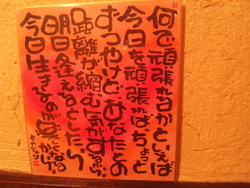 何で頑張れるかといえば
今日を頑張れば、ちょっと
ずつやけど、あなたとの
距離が縮む気がするから。
明日、逢えるとしたら
今日生きるのが